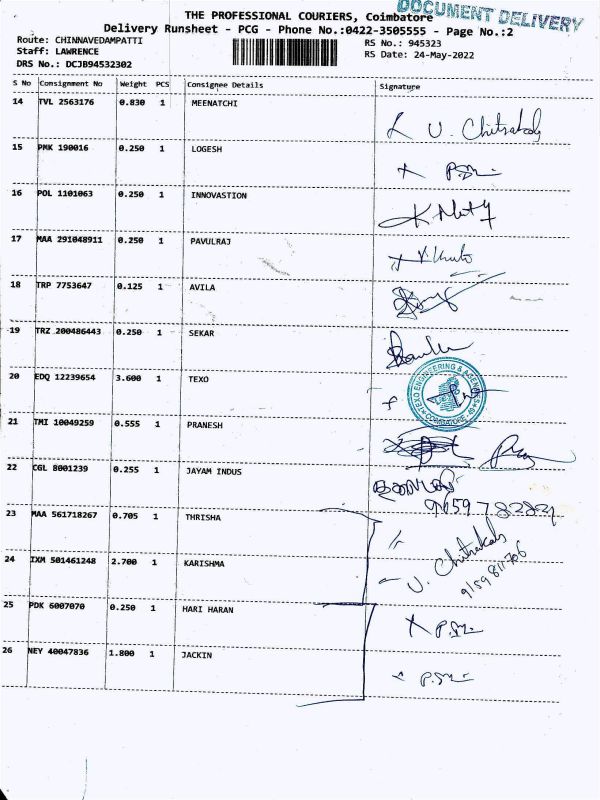 THE PROFESSIONAL COURIERS, Coimbatore
DOCUMENT DELIVERY
Delivery Runsheet - PCG - Phone No.:0422-3505555 - Page No.:2
Route: CHINNAVEDAMPATTI RS No.: 945323
Staff: LAWRENCE RS Date: 24-May-2022
DRS No.: DCJB94532302
S No Consignment No Weight PCS Consignee Details Signature
14 TVL 2563176 0.830 1 MEENATCHI
U. Chitrakala
15 PMK 190016 0.250 1 LOGESH
16 POL 1101063 0.250 1 INNOVASTION
17 MAA 291048911 0.250 1 PAVULRAJ
18 TRP 7753647 0.125 1 AVILA
19 TRZ 200486443 0.250 1 SEKAR
20 EDQ 12239654 3.600 1 TEXO
TEXO ENGINEERING & AGENCIES COIMBATORE
21 TMI 10049259 0.555 1 PRANESH
22 CGL 8001239 0.255 1 JAYAM INDUS
23 MAA 561718267 0.705 1 THRISHA
24 IXM 501461248 2.700 1 KARISHMA
U. Chitrakala
25 PDK 6007070 0.250 1 HARI HARAN
26 NEY 40047836 1.800 1 JACKIN